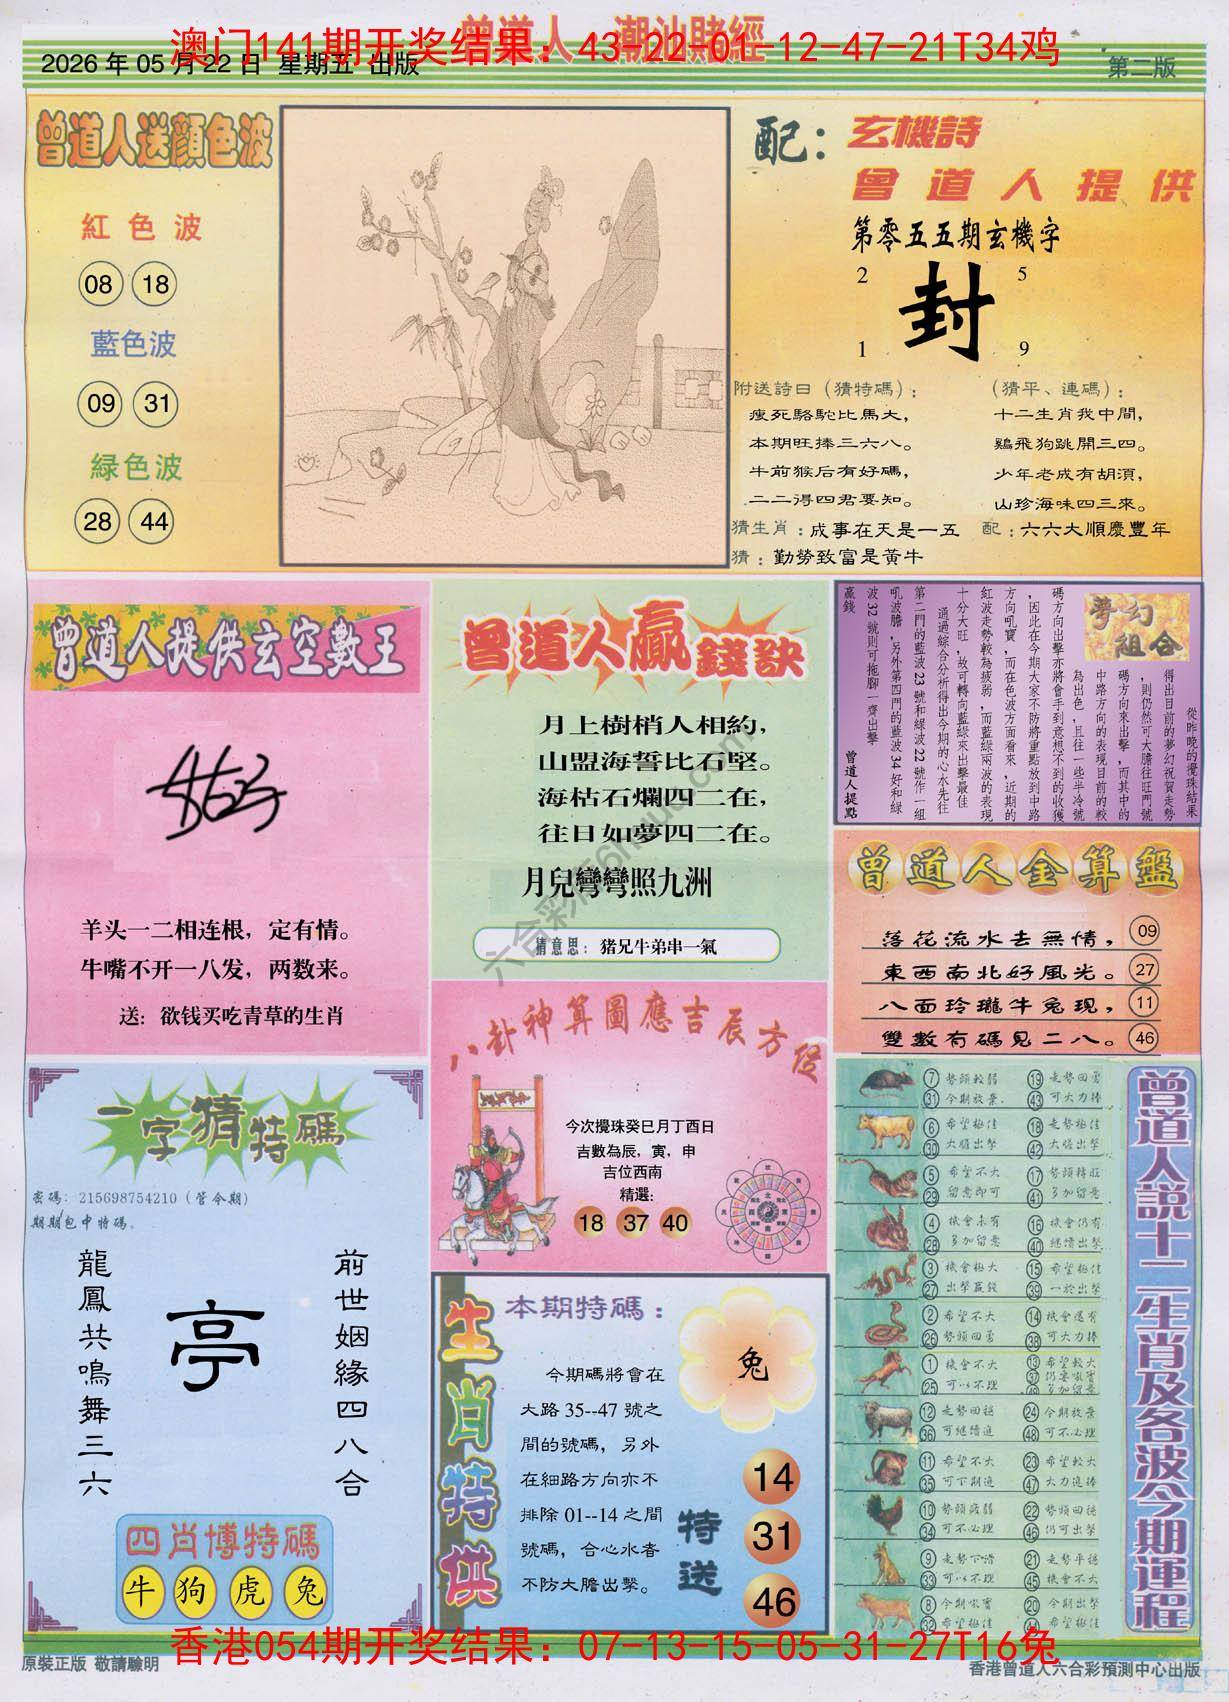 曾道人 潮汕賭經
澳门141期开奖结果：43-22-01-12-47-21T34鸡
2026 年 05 月 22 日 星期五 出版
第二版
曾道人送顏色波
紅色波
08 18
藍色波
09 31
緑色波
28 44
配：玄機詩
曾道人提供
第零五五期玄機字
2 5
封
1 9
附送詩曰（猜特碼）：
瘦死駱駝比馬大，
本期旺捧三六八。
牛前猴后有好碼，
二二得四君要知。
（猜平、連碼）：
十二生肖我中間，
鷄飛狗跳開三四。
少年老成有胡湏，
山珍海味四三來。
猜生肖：成事在天是一五
配：六六大順慶豐年
猜：勤勞致富是黃牛
曾道人提供玄空數王
羊头一二相连根，定有情。
牛嘴不开一八发，两数来。
送：欲钱买吃青草的生肖
曾道人贏錢訣
月上樹梢人相約，
山盟海誓比石堅。
海枯石爛四二在，
往日如夢四二在。
月兒彎彎照九洲
猜意思：猪兄牛弟串一氣
夢幻
組合
從昨晚的攪珠結果
得出目前的夢幻祝賀走勢
，則仍然可大膽往旺門號
碼方向來出擊，而其中的
中路方向的表現目前的較
為出色，且往一些半冷號
碼方向出擊亦將會手到意想不到的收獲
，因此在今期大家不防將重點放到中路
方向吼寶，而在色波方面看來，近期的
紅波走勢較為疲弱，而藍緑兩波的表現
十分大旺，故可轉向藍緑來出擊最佳
通過綜合分析得出今期的心水先往
第二門的藍波 23 號和緑波 22 號作一組
吼波膽，另外第四門的藍波 34 好和緑
波 32 號則可拖腳一齊出擊
贏錢
曾道人提點
曾道人金算盤
落花流水去無情， 09
東西南北好風光。 27
八面玲瓏牛兔現， 11
雙數有碼見二八。 46
八卦神算圖應吉辰方位
今次攪珠癸巳月丁酉日
吉數為辰，寅，申
吉位西南
精選：
18 37 40
一字猜特碼
密碼：215698754210（管今期）
期期包中特碼。
前世姻緣四八合
亭
龍鳳共鳴舞三六
四肖博特碼
牛 狗 虎 兔
生肖特供
本期特碼：
兔
今期碼將會在
大路 35--47 號之
間的號碼，另外
在細路方向亦不
排除 01--14 之間
號碼，合心水者
不防大膽出擊。
特送
14
31
46
曾道人説十二生肖及各波今期運程
7 勢頭較弱 19 走勢回勇
31 今期放棄 43 可大力捧
6 希望極佳 18 走勢極佳
30 大膽出擊 42 大膽出擊
5 希望不大 17 勢頭轉旺
29 留意即可 41 多加留意
4 機會未有 16 機會仍有
28 多加留意 40 繼續出擊
3 機會極大 15 希望極佳
27 出擊贏錢 39 一於出擊
2 希望不大 14 機會還有
26 勢頭回勇 38 可大力捧
1 機會不大 13 希望較大
25 可以不理 37 仍要吼實
49 多加留意
12 走勢回穩 24 今期放棄
36 可繼續追 48 可不必理
11 希望不大 23 希望較大
35 可下期追 47 大力追捧
10 勢頭疲弱 22 勢頭回穩
34 可不必理 46 仍可出擊
9 走勢下滑 21 走勢平穩
33 可以不理 45 機會不大
8 今期吼實 20 今期出擊
32 希望極佳 44 希望極佳
香港054期开奖结果：07-13-15-05-31-27T16兔
原裝正版 敬請驗明
香港曾道人六合彩預測中心出版